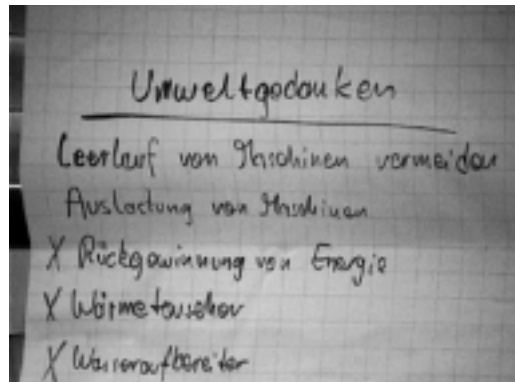 Umweltgedanken
Leerlauf von Maschinen vermeiden
Auslastung von Maschinen
X Rückgewinnung von Energie
X Wärmetauscher
X Wasseraufbereiter